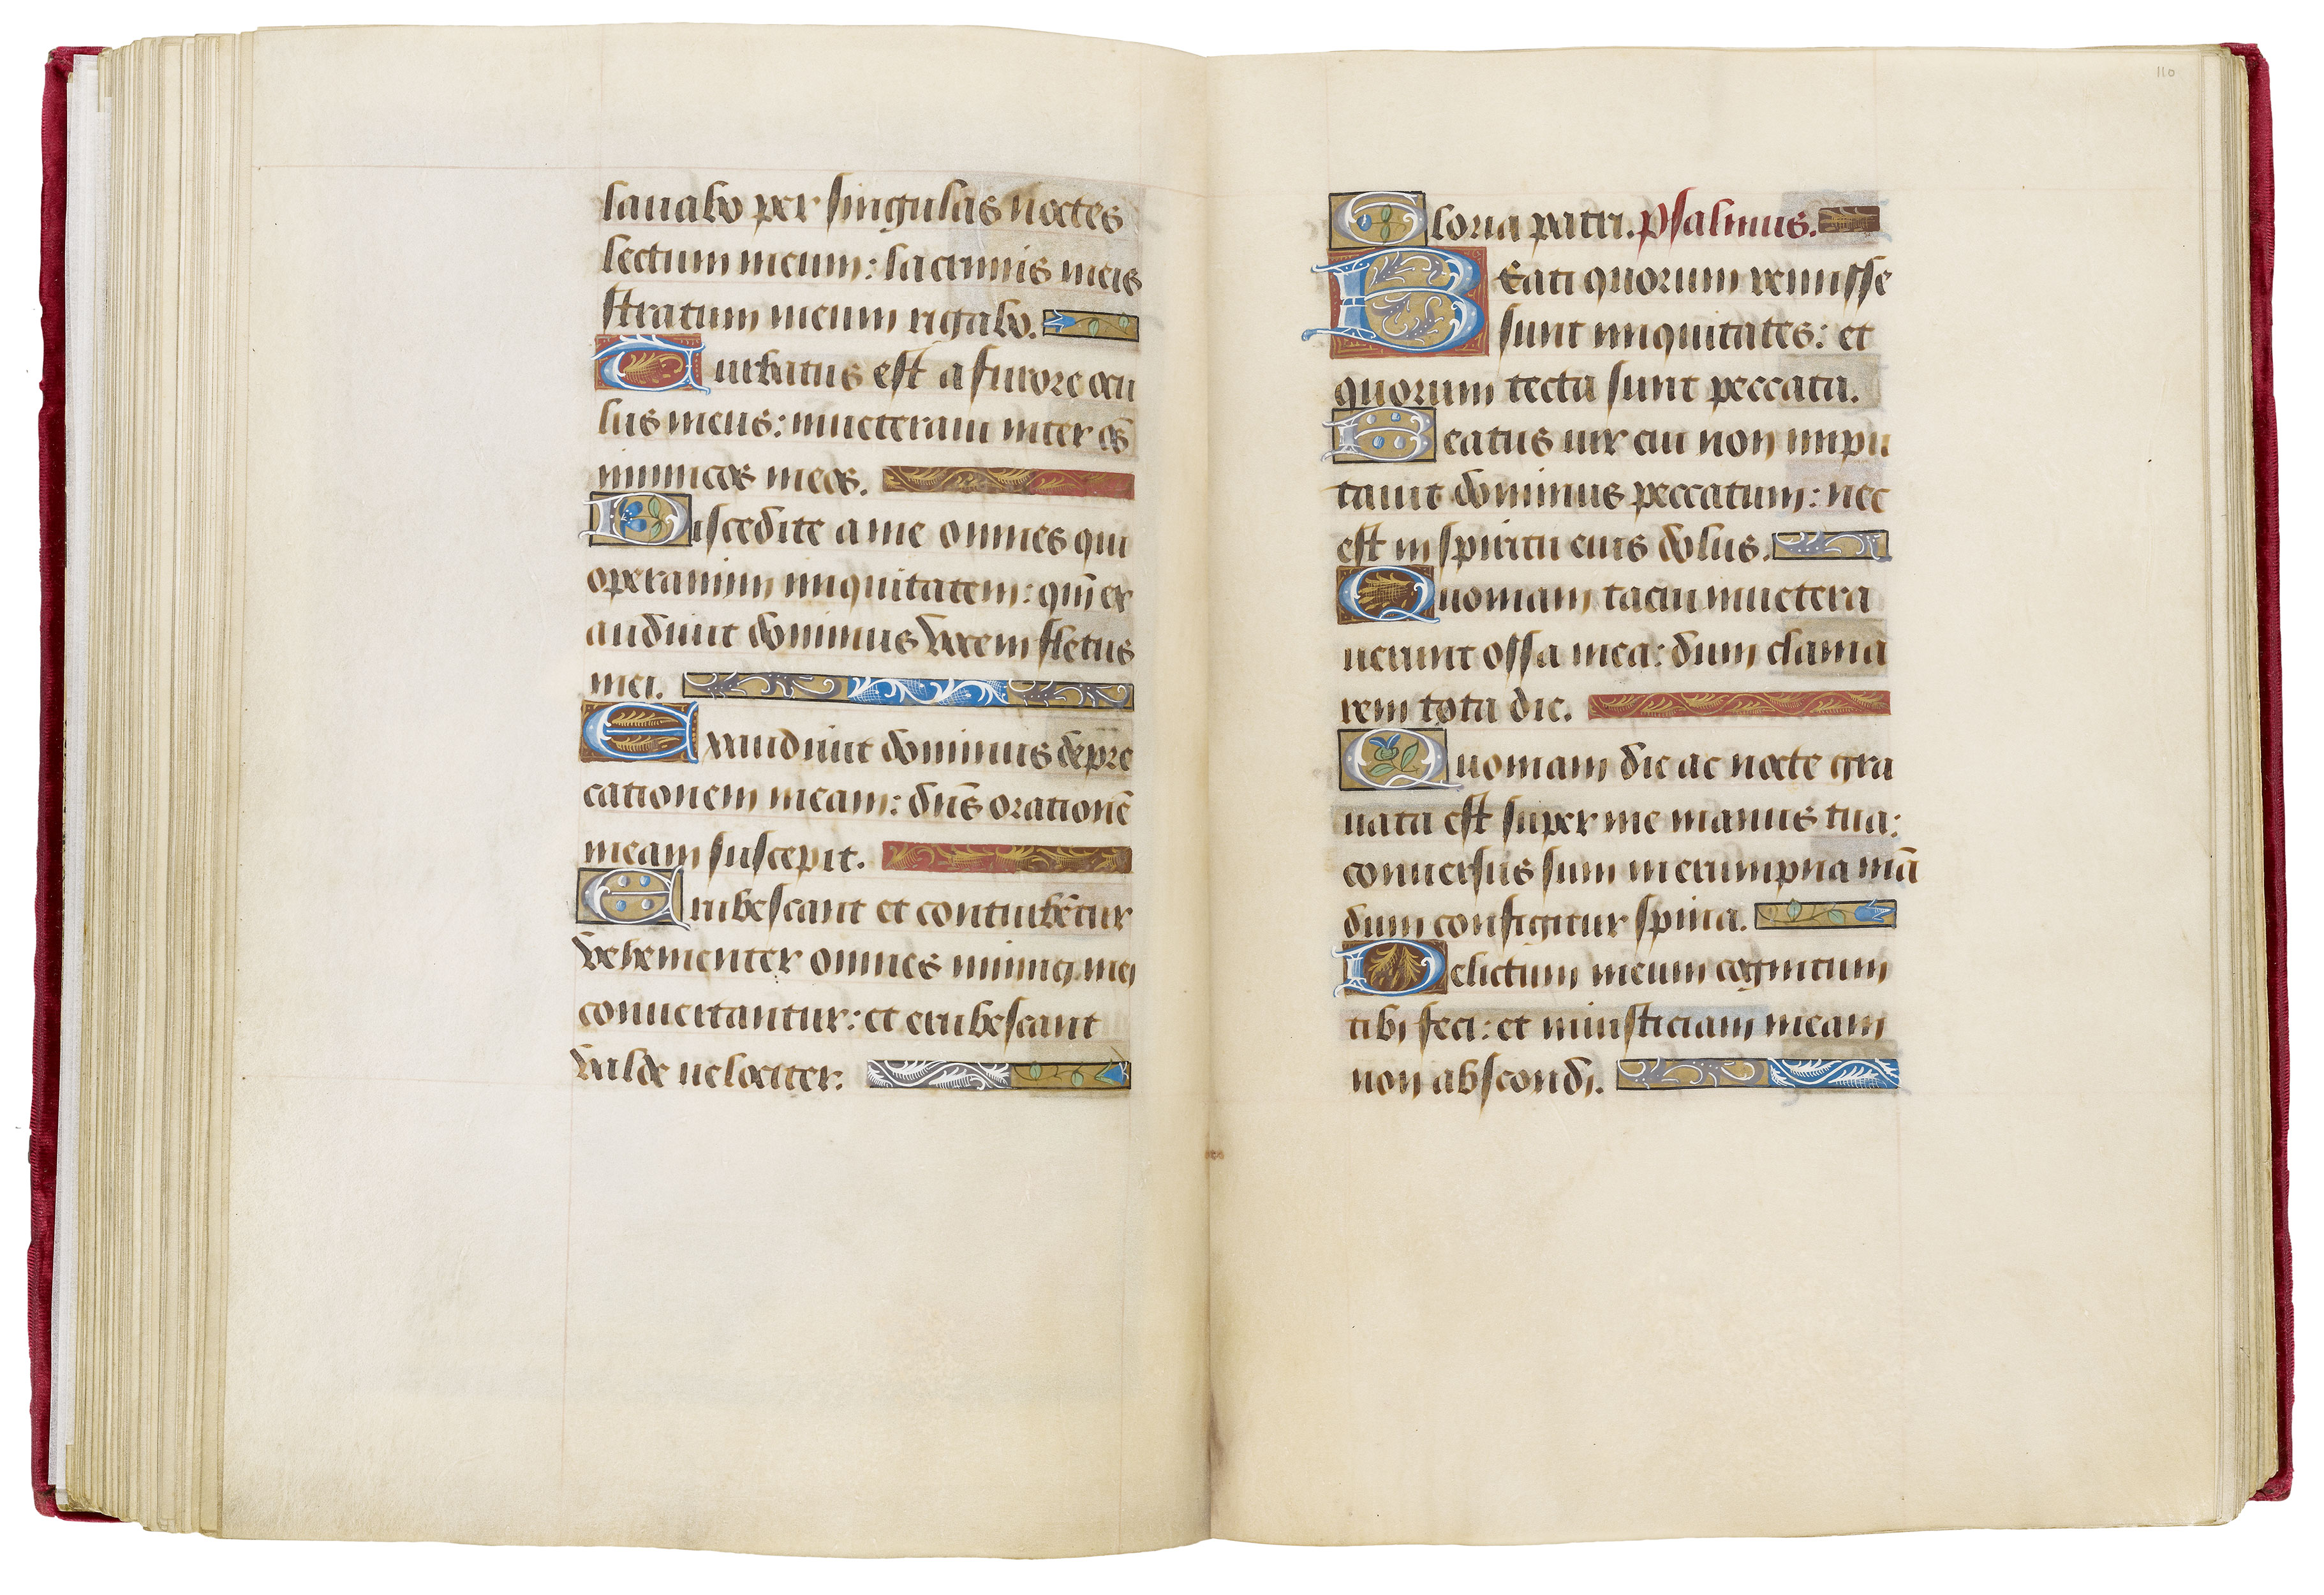 lauabo per singulas noctes
lectum meum: lacrimis meis
stratum meum rigabo.
Turbatus est a furore ocu
lus meus: inueteraui inter oēs
inimicos meos.
Discedite a me omnes qui
operamini iniquitatem: qm̄ ex
audiuit dominus vocem fletus
mei.
Exaudiuit dominus depre
cationem meam: dn̄s orationē
meam suscepit.
Erubescant et conturbētur
vehementer omnes inimici mei
conuertantur: et erubescant
valde uelociter.
110
Gloria patri. Psalmus.
BEati quorum remisse
sunt iniquitates: et
quorum tecta sunt peccata.
Beatus uir cui non impu
tauit dominus peccatum: nec
est in spiritu eius dolus.
Quoniam tacui inuetera
uerunt ossa mea: dum clama
rem tota die.
Quoniam die ac nocte gra
uata est super me manus tua:
conuersus sum in erumpna mā
dum configitur spina.
Delictum meum cognitum
tibi feci: et iniusticiam meam
non abscondi.